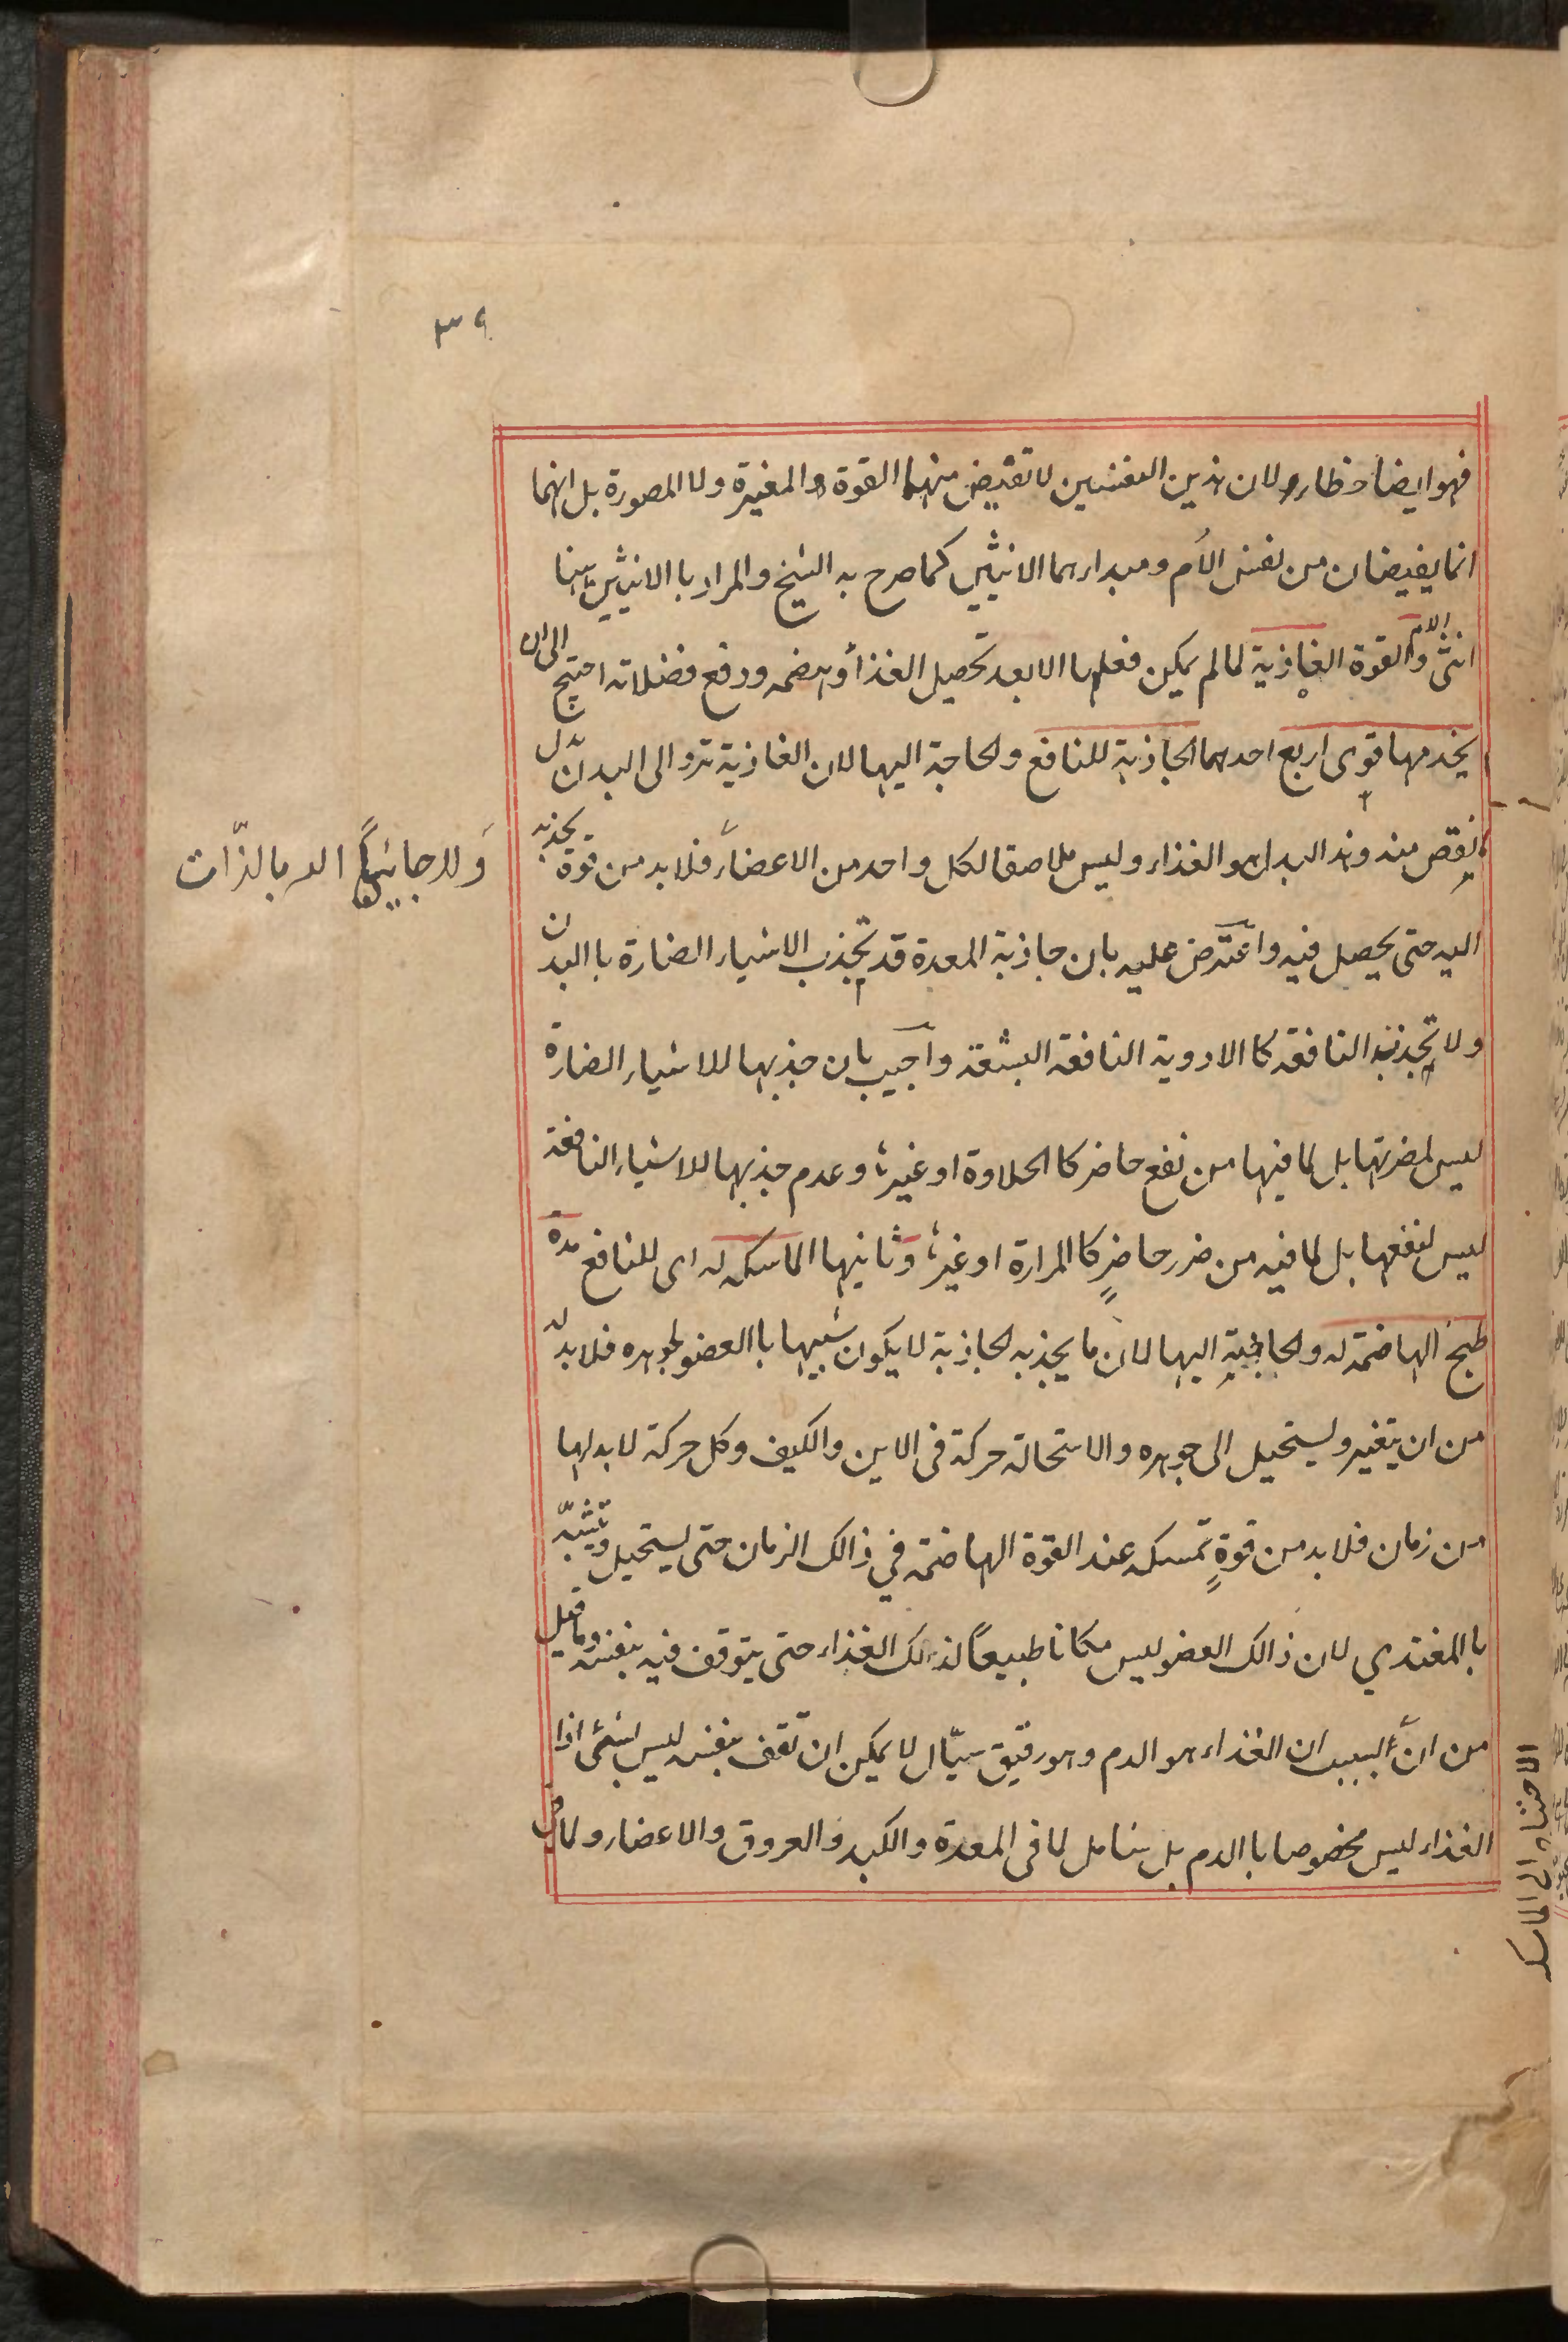 ٣٩
فهو ايضا خطاء لان هذين النفسين لا تفيض منهما القوة والمغيرة ولا المصورة بل انهما
انما يفيضان من نفس الأم ومبداءهما الانثيين كما صرح به الشيخ والمراد با الانثيين هنا
انثى الام والقوة الغاذية لما لم يمكن فعلها الا بعد تحصيل الغذاء وهضمه ودفع فضلاته احتيج الى ان
يخدمها قوى اربع احدهما الجاذبة للنافع ولحاجة اليها لان الغاذية ترد الى البدن بدل
ينقص منه وهذا البدل هو الغذاء وليس ملاصقا لكل واحد من الاعضاء فلابد من قوة تجذبه
اليه حتى يحصل فيه واعترض عليه بان جاذبة المعدة قد تجذب الاشياء الضارة با البدن
ولا تجذب النافعة كا الادوية النافعة البشعة وأجيب بان جذبها للاشياء الضارة
ليس لمضرتها بل لما فيها من نفع حاضر كا الحلاوة او غيرها وعدم جذبها للاشياء النافعة
ليس لنفعها بل لما فيه من ضرر حاضرٍ كا المرارة او غيرها وثانيها الماسكة له اى للنافع مدة
طبخ الهاضمة له ولحاجة اليها لان ما يجذبه لجاذبة لا يكون شبيها با العضو لجوهره فلابد له
من ان يتغير ويستحيل الى جوهره والاستحالة حركة فى الاين والكيف وكل حركة لابد لها
من زمان فلابد من قوةٍ تمسكه عند القوة الهاضمة في ذالك الزمان حتى يستحيل وتشبّه
با المغتذي لان ذالك العضو ليس مكانا طبيعيا لذالك الغذاء حتى يتوقف فيه بنفسه وما قيل
من انّ السبب ان الغذاء هو الدم وهو رقيق سيّال لا يمكن ان تقف بنفسه ليس بشئ اذا
الغذاء ليس مخصوصا با الدم بل شامل لما فى المعدة والكبد والعروق والاعضاء ولما كان
بالذّات
الى الماسكه